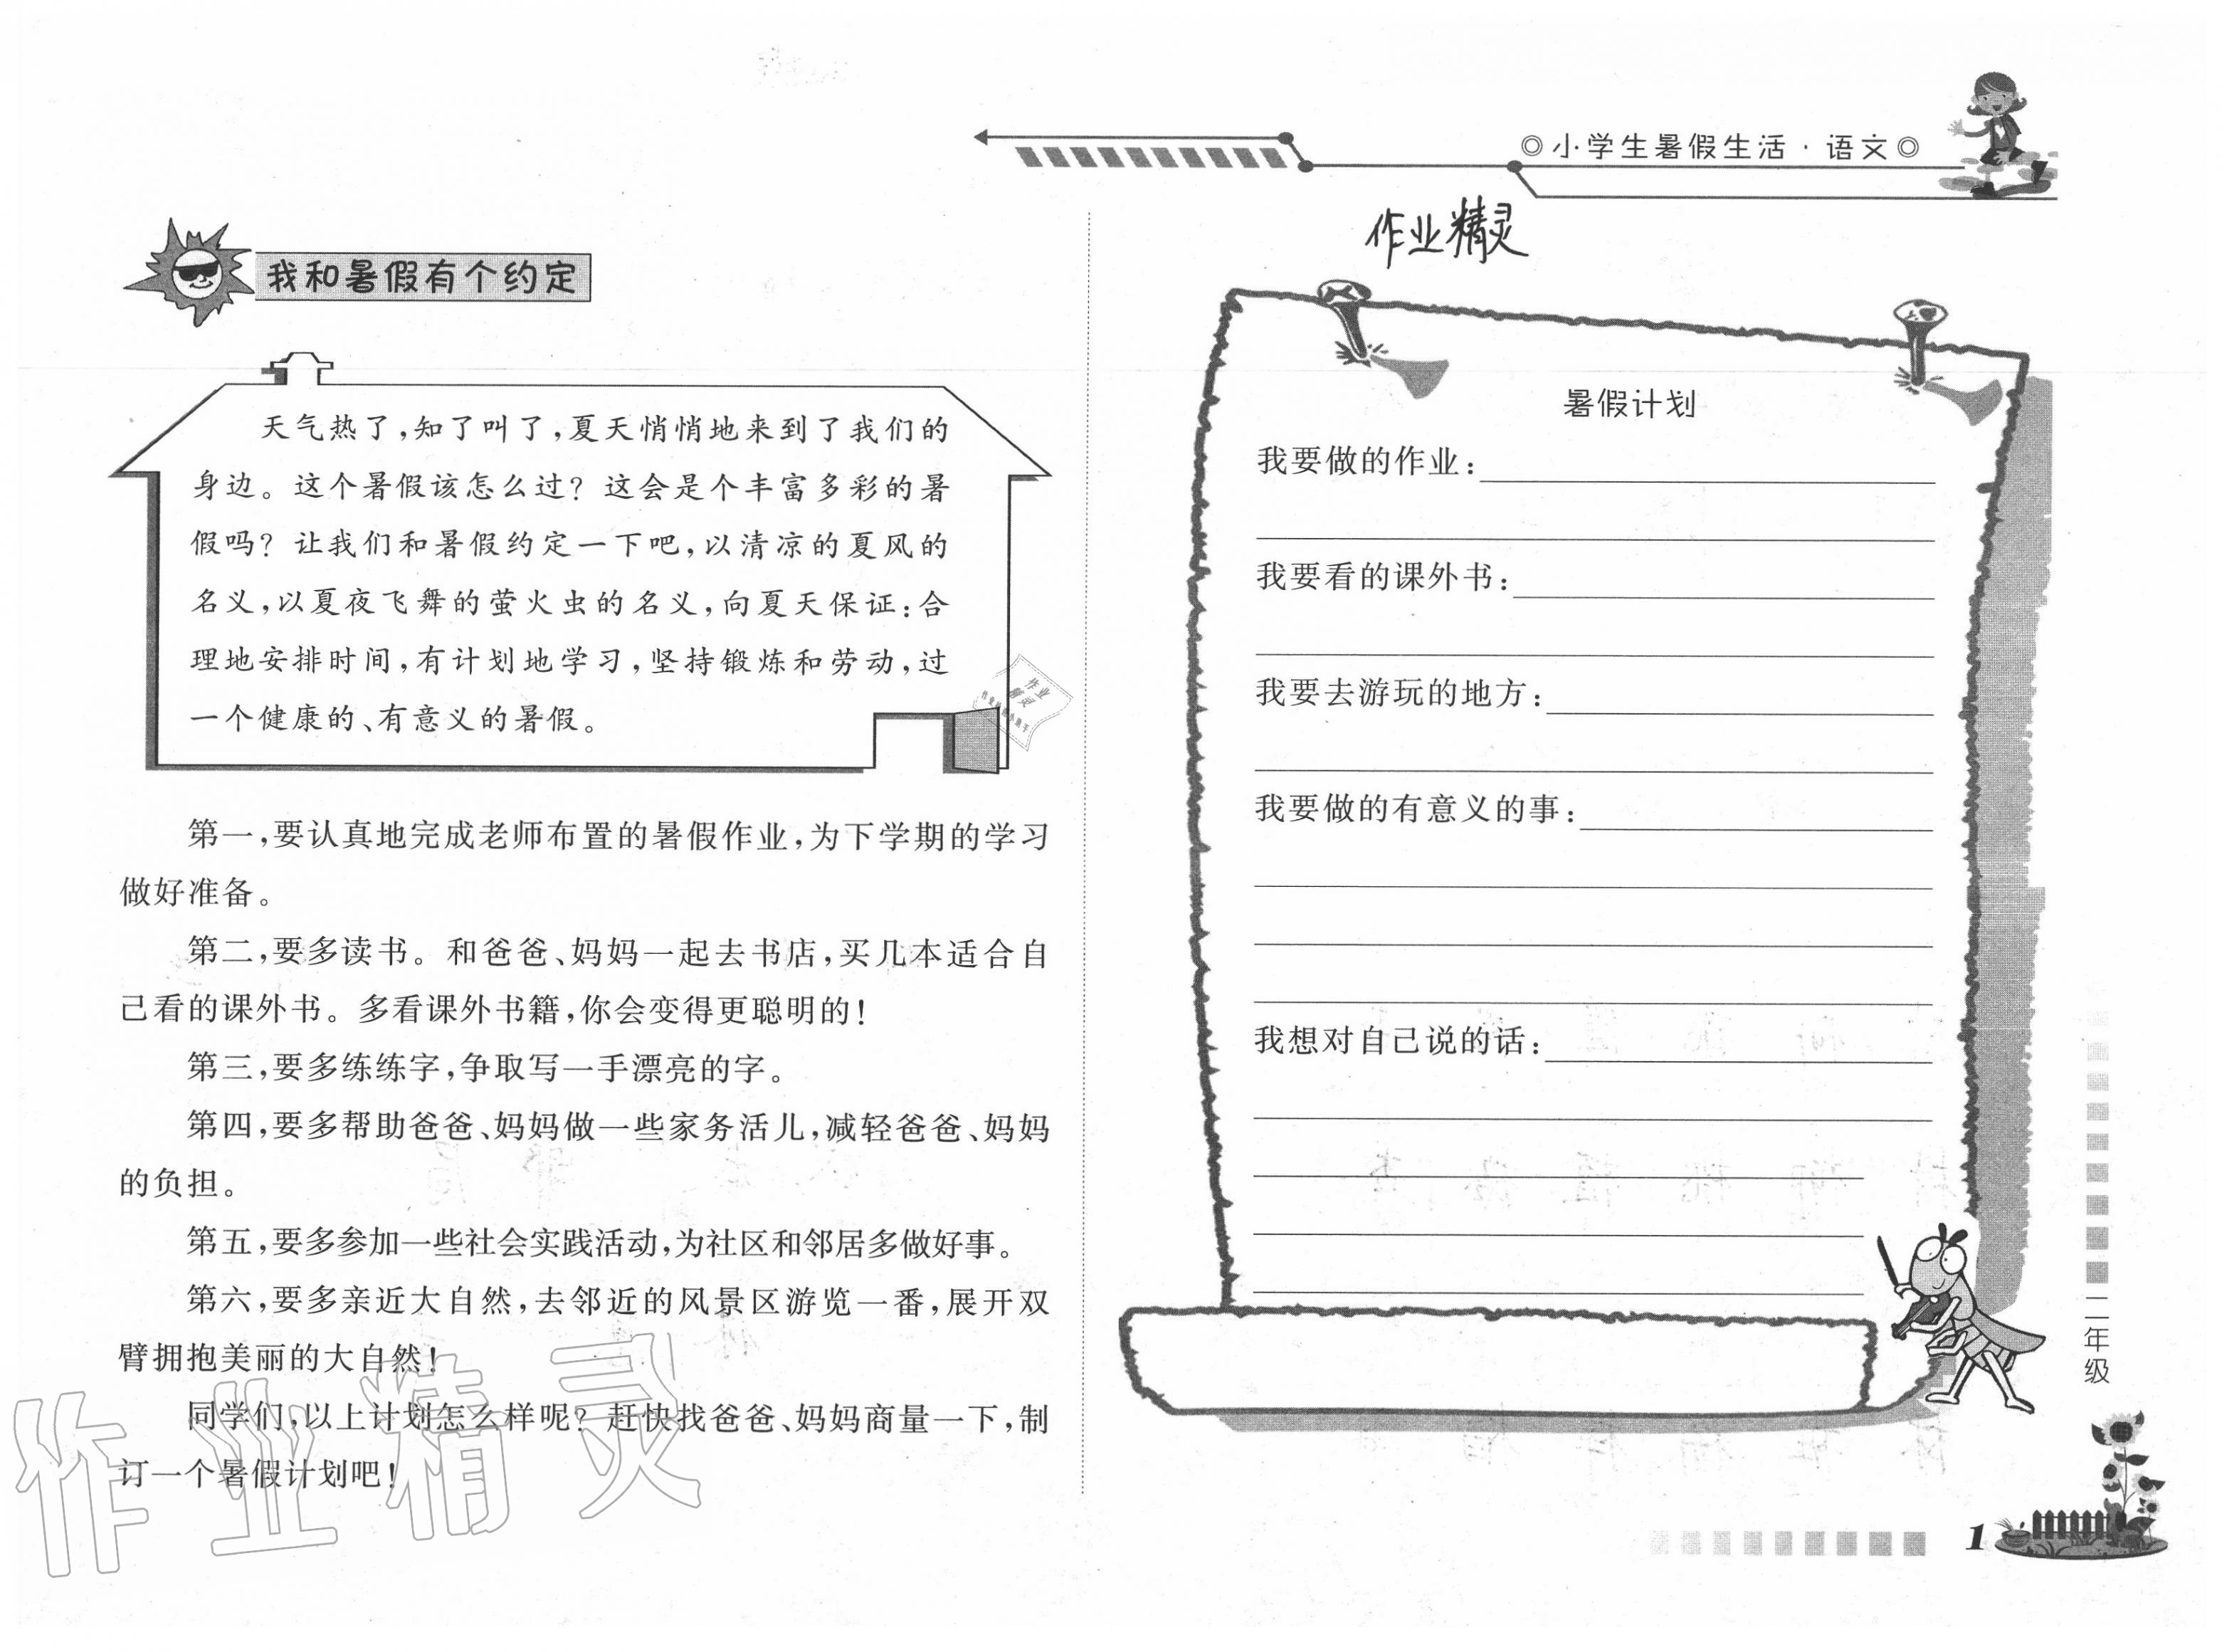 ◎小学生暑假生活·语文◎
我和暑假有个约定
天气热了,知了叫了,夏天悄悄地来到了我们的
身边。这个暑假该怎么过?这会是个丰富多彩的暑
假吗?让我们和暑假约定一下吧,以清凉的夏风的
名义,以夏夜飞舞的萤火虫的名义,向夏天保证:合
理地安排时间,有计划地学习,坚持锻炼和劳动,过
一个健康的、有意义的暑假。
第一,要认真地完成老师布置的暑假作业,为下学期的学习
做好准备。
第二,要多读书。和爸爸、妈妈一起去书店,买几本适合自
己看的课外书。多看课外书籍,你会变得更聪明的!
第三,要多练练字,争取写一手漂亮的字。
第四,要多帮助爸爸、妈妈做一些家务活儿,减轻爸爸、妈妈
的负担。
第五,要多参加一些社会实践活动,为社区和邻居多做好事。
第六,要多亲近大自然,去邻近的风景区游览一番,展开双
臂拥抱美丽的大自然!
同学们,以上计划怎么样呢?赶快找爸爸、妈妈商量一下,制
订一个暑假计划吧!
作业精灵
作业精灵
暑假计划
我要做的作业:
我要看的课外书:
我要去游玩的地方:
我要做的有意义的事:
我想对自己说的话:
二年级
1
作业
精灵